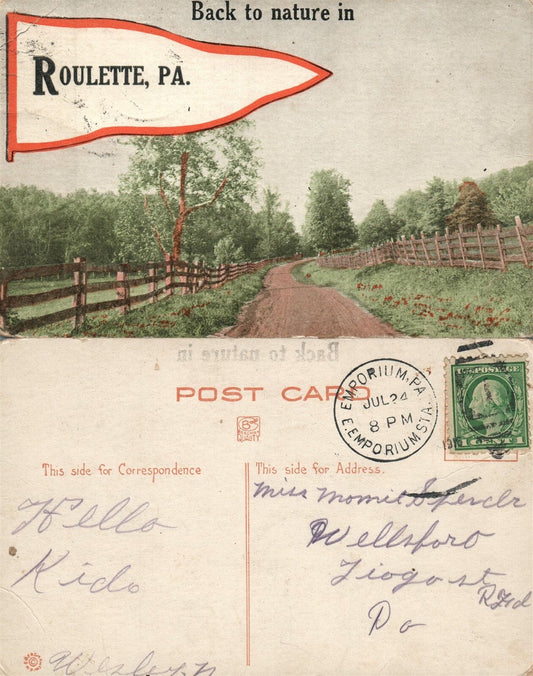 Back to nature in
ROULETTE, PA.
Back to nature in
POST CARD
EMPORIUM, PA.
JUL 24
8 PM
E. EMPORIUM STA.
U.S. POSTAGE
1 CENT 1
This side for Correspondence
This side for Address.
Hello
Kido
Miss
Wellsboro
Tioga st
RFd
Pa